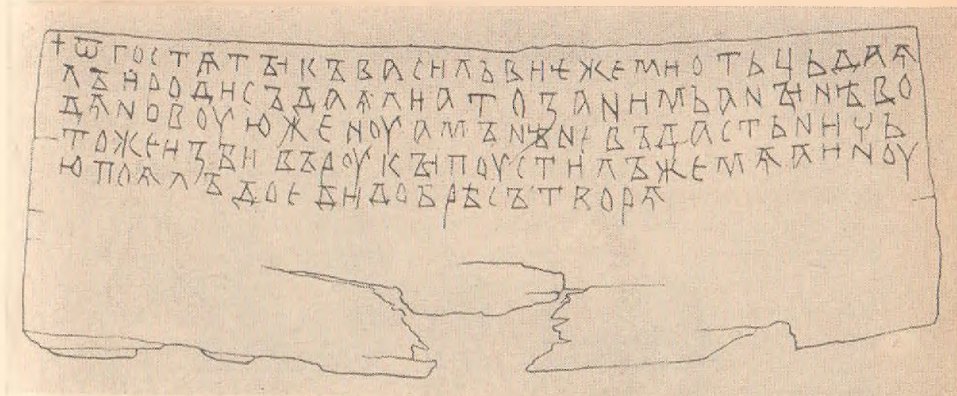 +ѾГОСТѦТЪІКЪВАСИЛЬВИѤЖЕМИОТЬЦЬДАѦ
ЛЪИРОДИСЪДАѦЛИАТОЗАНИМЬАНЪІНѢВО
ДѦНОВОУЮЖЕНОУАМЪНѢНЕВЪДАСТЬНИЧЬ
ТОЖЕИЗБИВЪРОУКЪІПОУСТИЛЪЖЕМѦАИНОУ
ЮПОѦЛЪДОЕДИДОБРѢСЪТВОРѦ